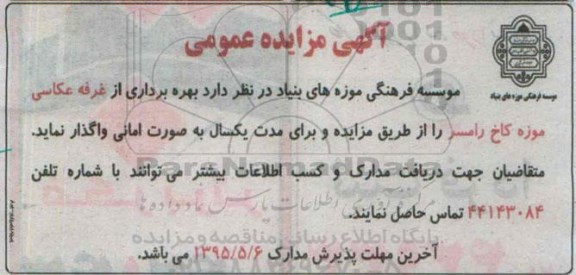 آگهی مزایده عمومی
موسسه فرهنگی موزه های بنیاد
موسسه فرهنگی موزه های بنیاد در نظر دارد بهره برداری از غرفه عکاسی
موزه کاخ رامسر را از طریق مزایده و برای مدت یکسال به صورت امانی واگذار نماید.
متقاضیان جهت دریافت مدارک و کسب اطلاعات بیشتر می توانند با شماره تلفن
۴۴۱۴۳۰۸۴ تماس حاصل نمایند.
آخرین مهلت پذیرش مدارک ۱۳۹۵/۵/۶ می باشد.
ParsNamadData
پایگاه اطلاع رسانی مناقصه و مزایده